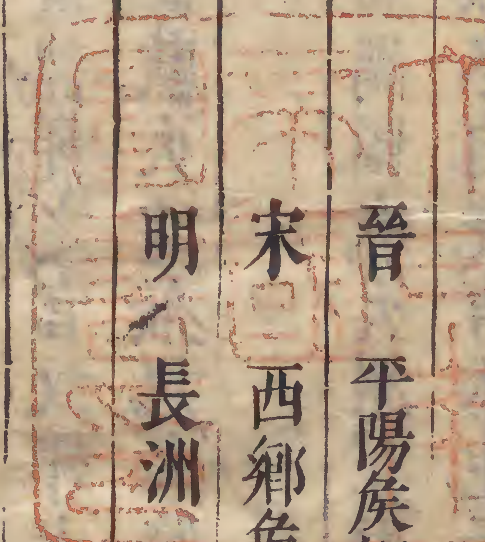 晉 平陽矦
宋 西鄉矦
明 長洲